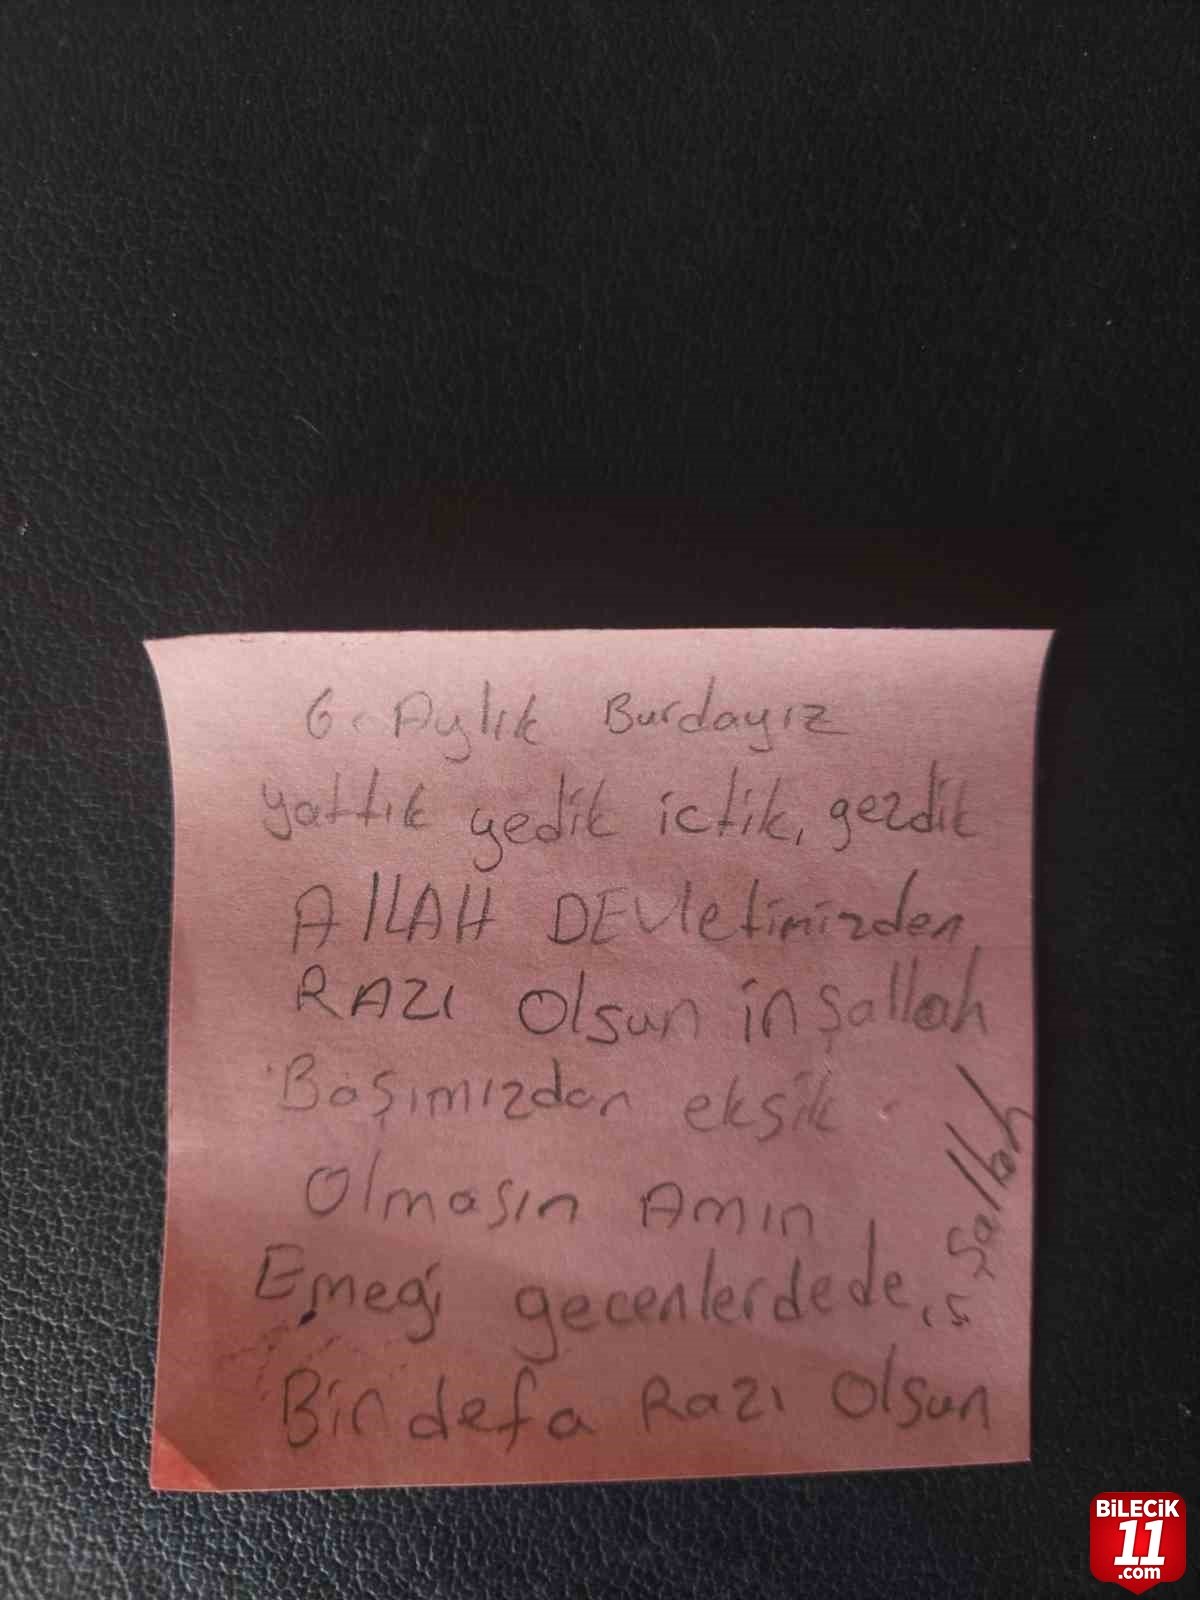 6. Aylık Burdayız
yattık yedik ictik, gezdik
AllAH DEVletimizden
RAZI Olsun inşallah
Başımızdan eksik
Olmasın Amın
Emeği gecenlerdede
Bin defa Razı Olsun
işallah
BİLECİK
11
.com